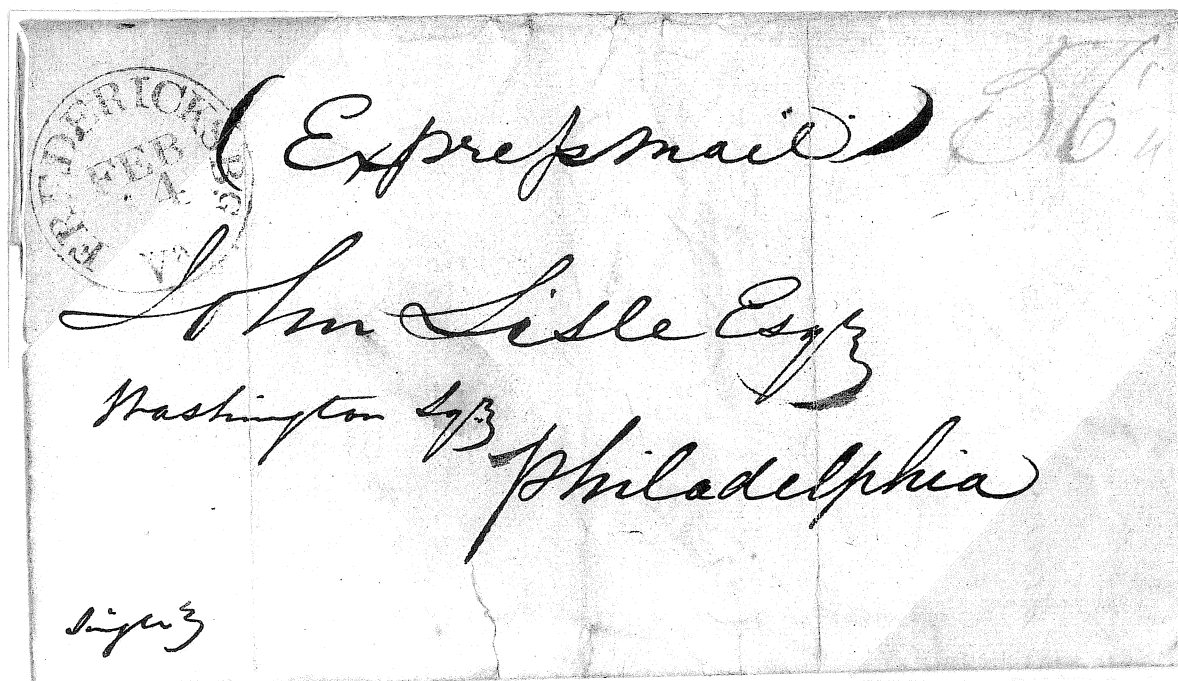 FREDERICKSB.G
FEB
4
Va
(Expreſsmail)
John Lisle Esqr
Washington Sqr
Philadelphia
Single